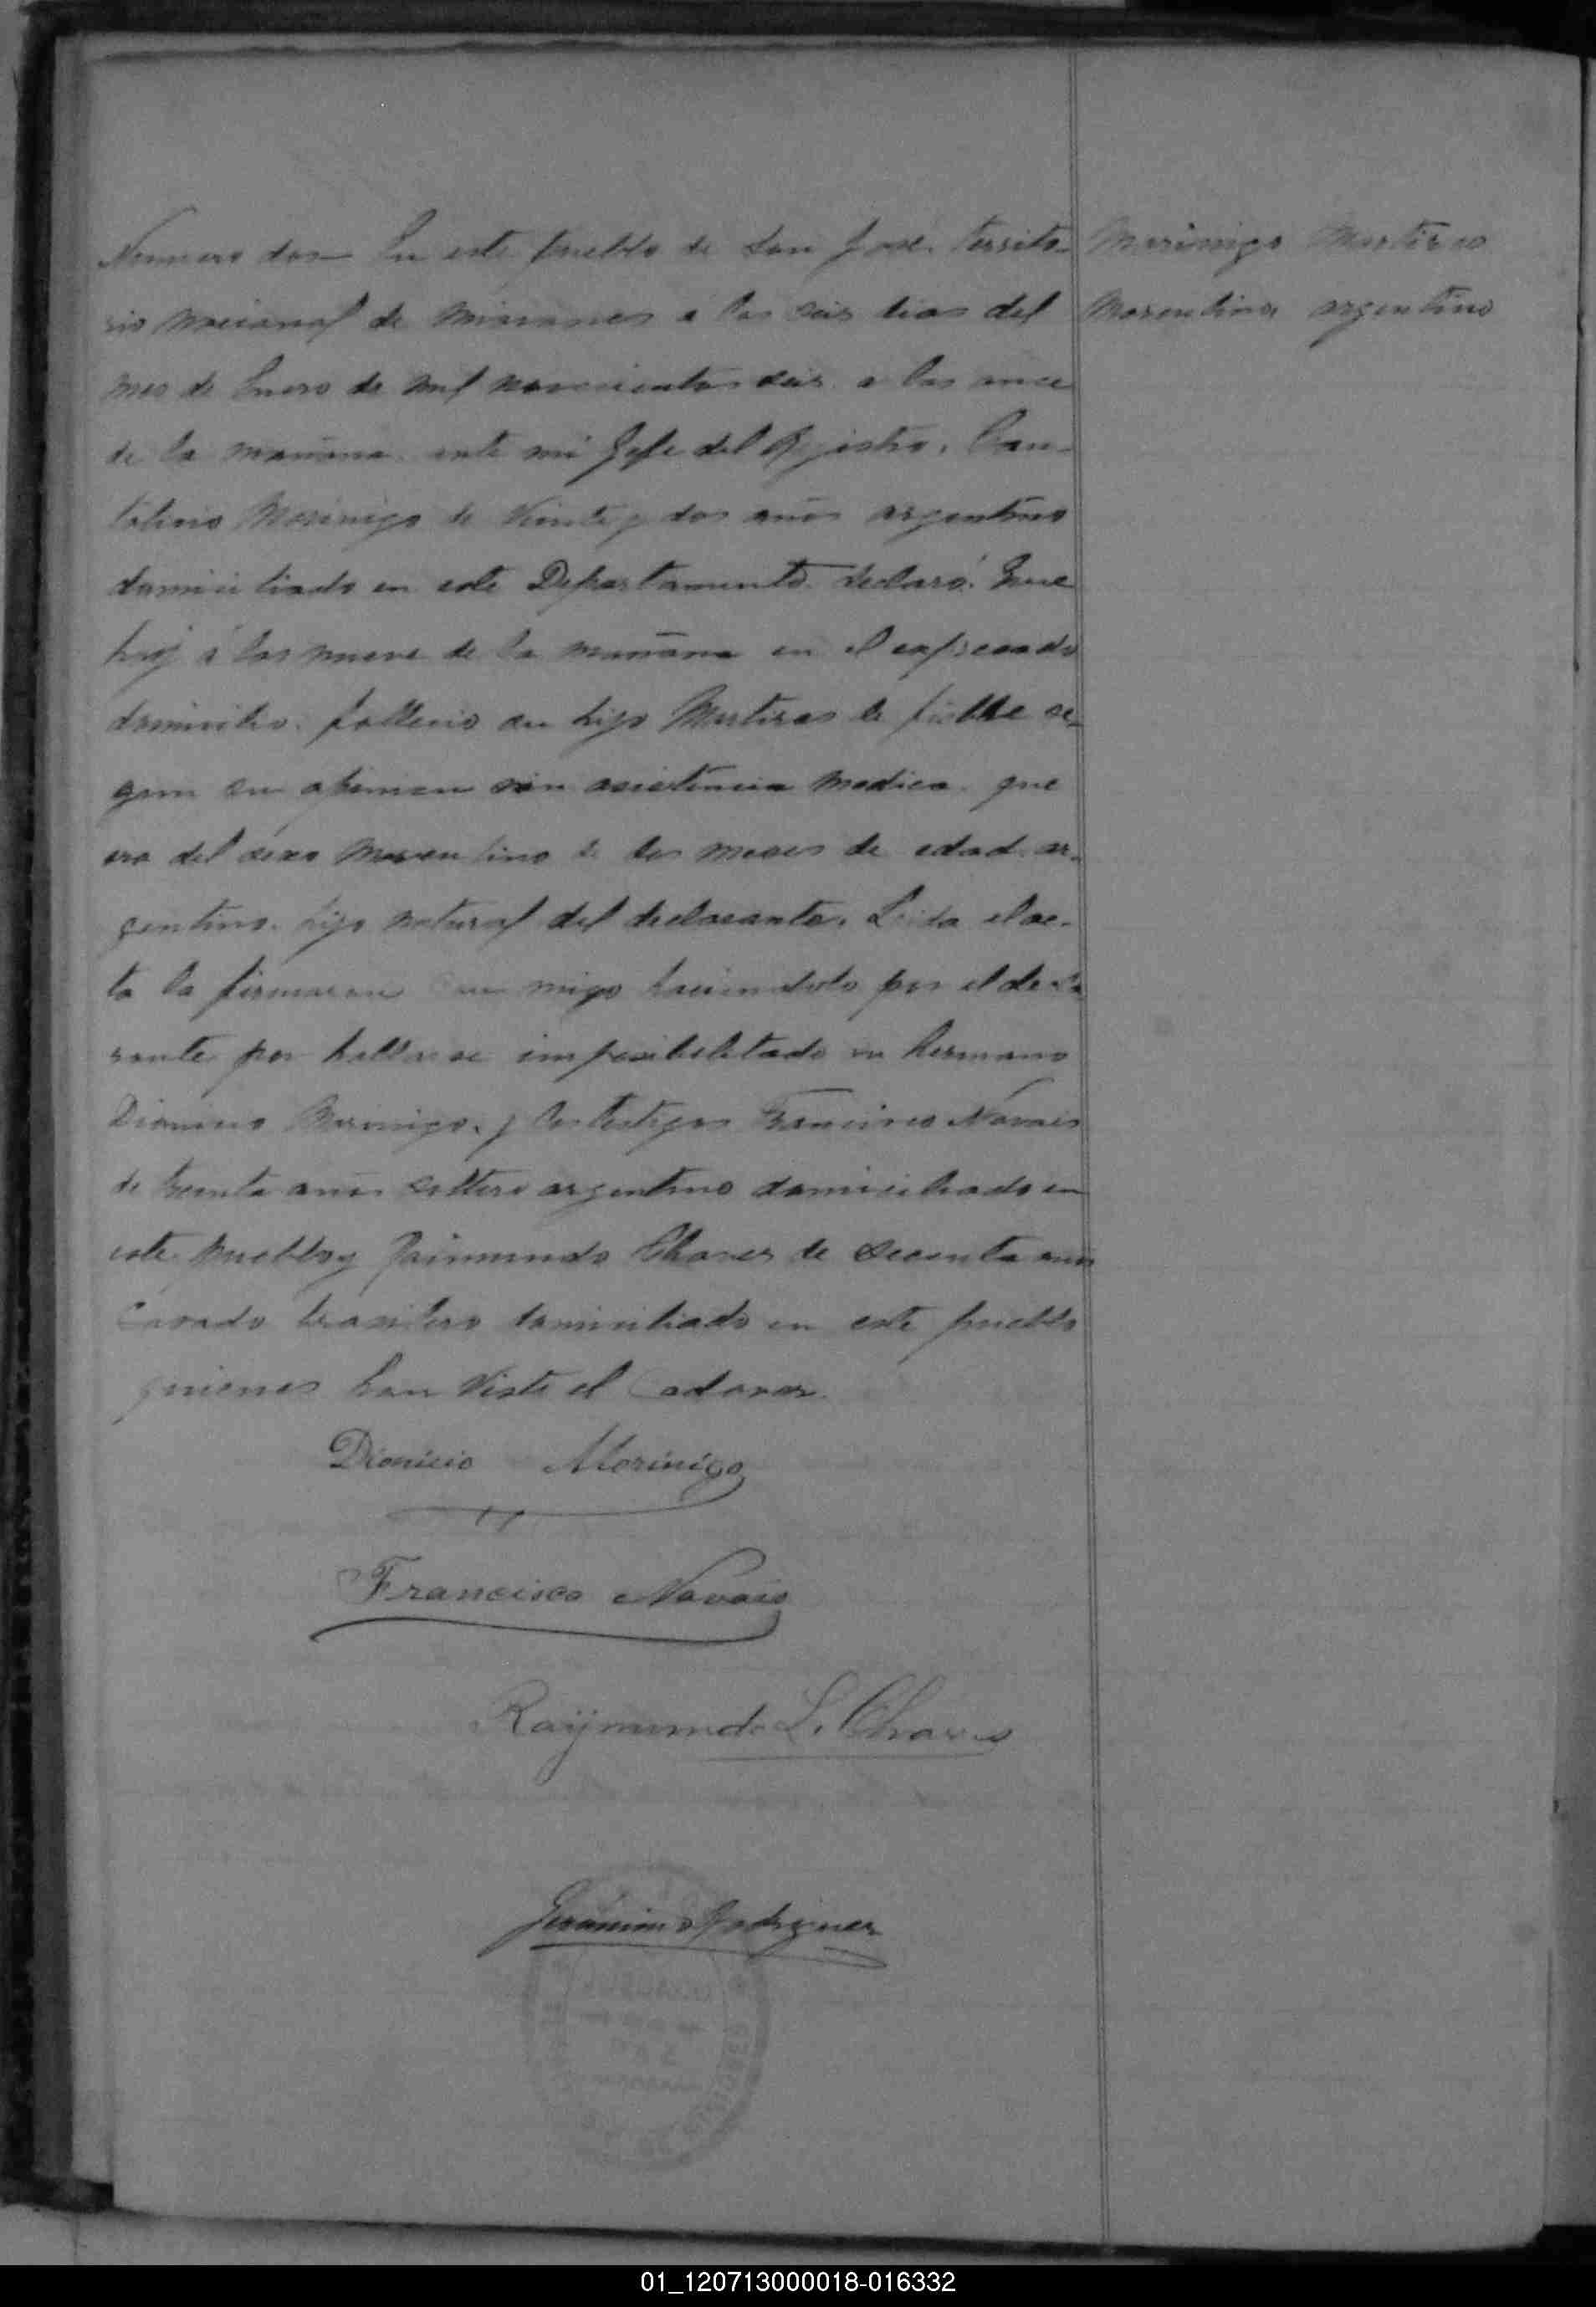 Numero dos En este pueblo de San Jose. territo-
rio Nacional de Misiones a los seis dias del
mes de Enero de mil novecientos seis a las once
de la mañana ante mi Jefe del Registro, Can-
talicio Morinigo de Veinte y dos años argentino
domiciliado en este Departamento declaró: Que
hoy á las nueve de la mañana en el expresado
domicilio. fallecio su hijo Martires de fiebre se-
gun su opinion sin asistencia medica. que
era del sexo Masculino de dos meses de edad. ar-
gentino. hijo natural del declarante. Leida el ac-
ta la firmaron con migo haciendolo por el decla
rante por hallarse imposibilitado su hermano
Dionicio Morinigo. y los testigos Francisco Novais
de treinta años soltero argentino domiciliado en
este pueblo y Raimundo Chaves de sesenta años
Casado brasilero domiciliado en este pueblo
quienes han visto el Cadaver.
Dionicio Morinigo
Francisco Novais
Raymundo L. Chaves
Geronimo Rodriguez
Morinigo Martires
Masculino argentino
01_120713000018-016332